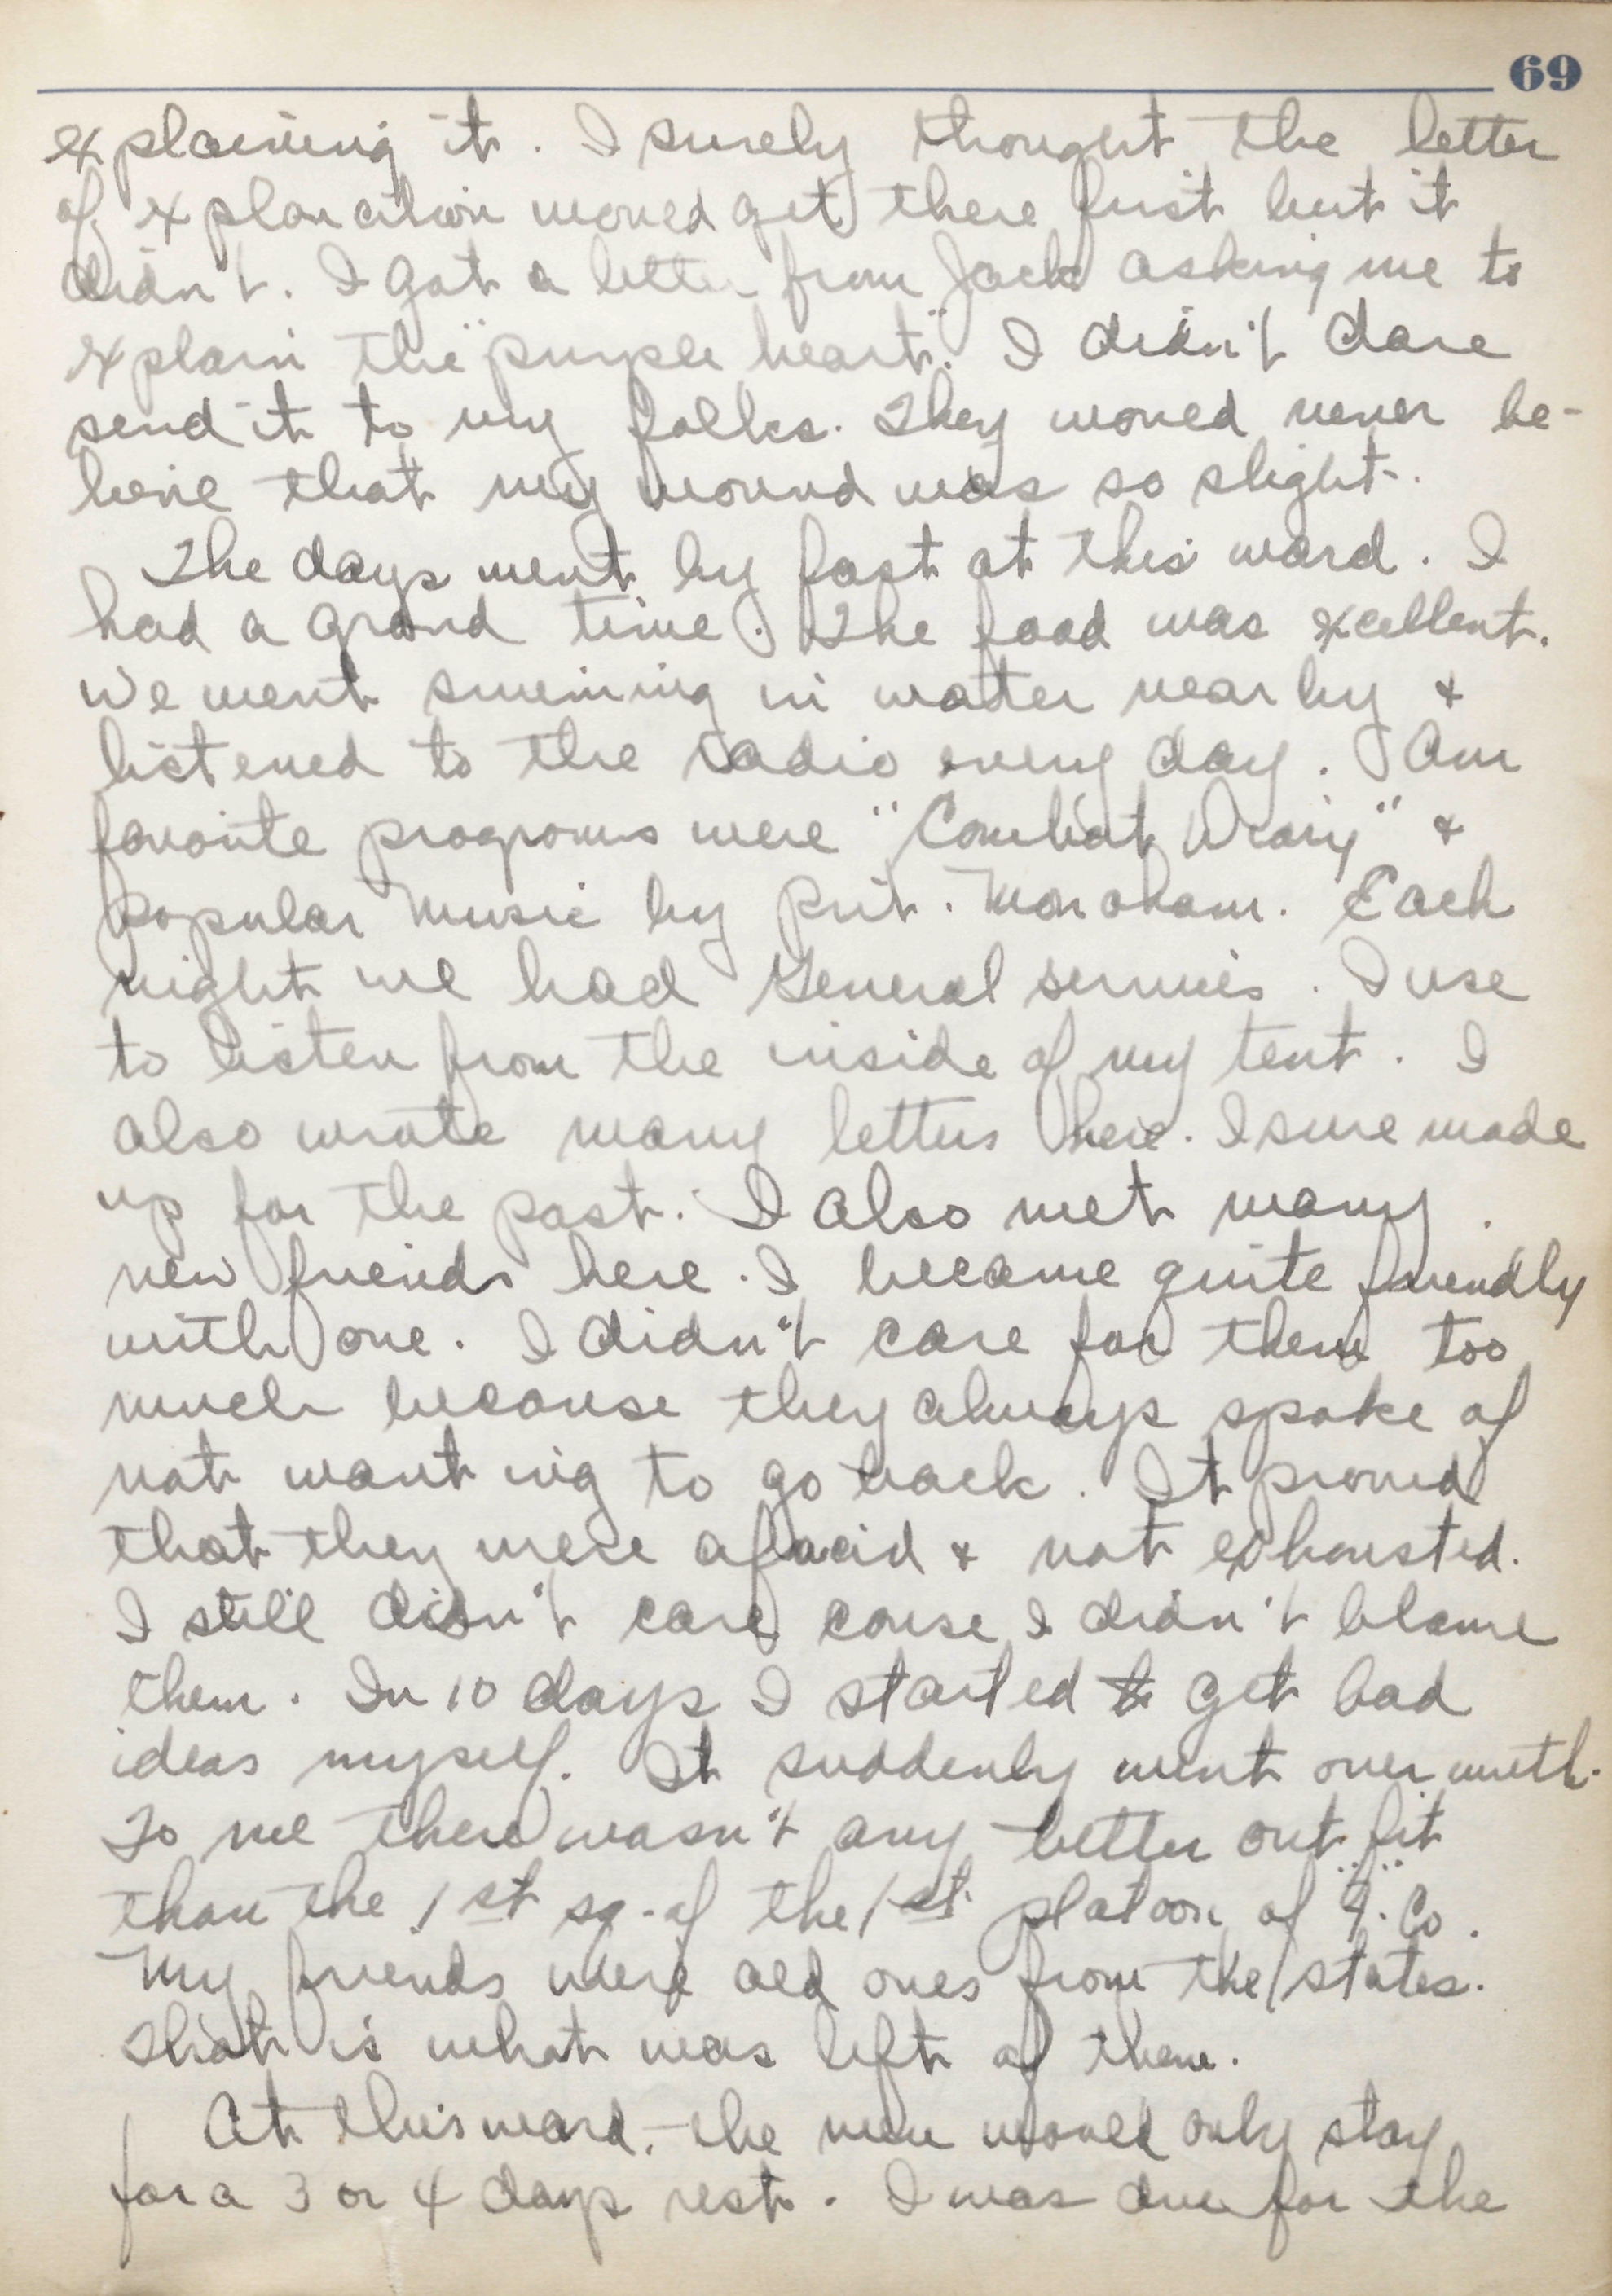 69
explaining it. I surely thought the letter
of explanation would get there first but it
didn't. I got a letter from Jack asking me to
explain the "purple heart". I didn't dare
send it to my folks. They would never be-
leive that my wound was so slight.
The days went by fast at this ward. I
had a grand time. The food was excellent.
We went swimming in water near by &
listened to the radio every day. Our
favorite programs were "Combat Diary" &
popular music by Pvt. Monaham. Each
night we had General services. I use
to listen from the inside of my tent. I
also wrote many letters here. I sure made
up for the past. I also met many
new friends here. I became quite friendly
with one. I didn't care for them too
much because they always spoke of
not wanting to go back. It proved
that they were afraid & not exhausted.
I still didn't care cause I didn't blame
them. In 10 days I started to get bad
ideas myself. It suddenly went over with.
To me there wasn't any better out fit
than the 1st sq. of the 1st platoon of Co.
My friends were old ones from the states.
That is what was left of them.
At this ward, the men would only stay
for a 3 or 4 days rest. I was due for the